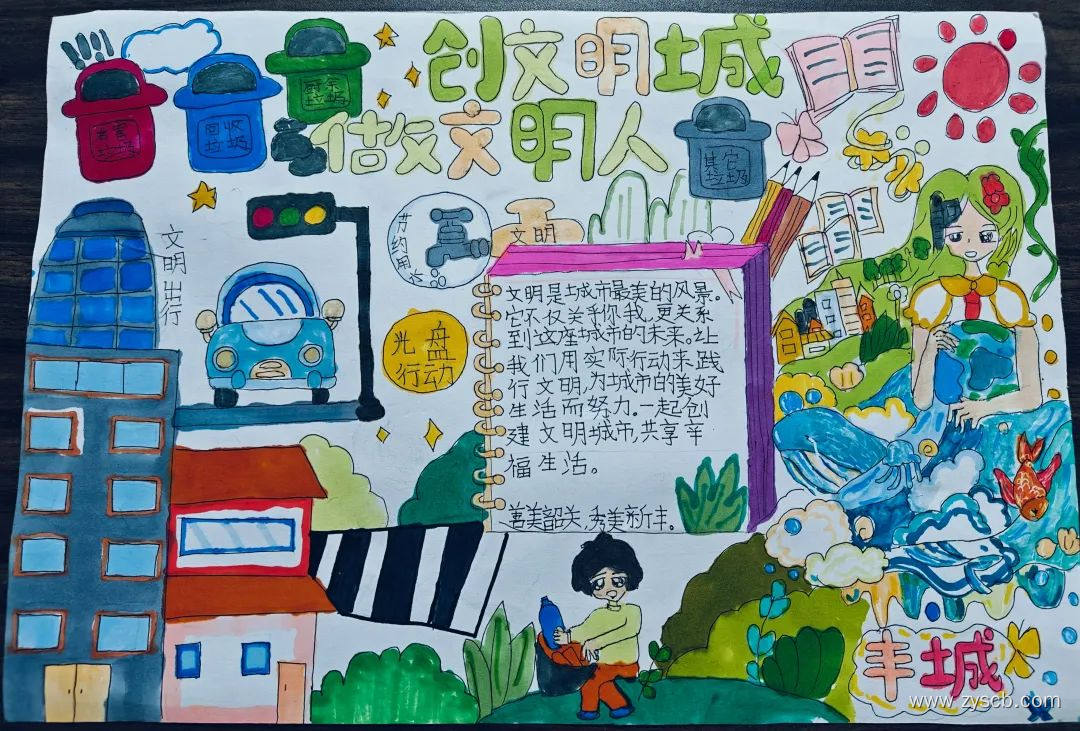 创文明城
做文明人
有害
垃圾
回收
垃圾
厨余
垃圾
其它
垃圾
文明出行
节约用水
文明
光盘
行动
文明是城市最美的风景。
它不仅关乎你我,更关系
到这座城市的未来。让
我们用实际行动来践
行文明,为城市的美好
生活而努力。一起创
建文明城市,共享幸
福生活。
善美韶关,秀美新丰。
丰城
www.zyscb.com